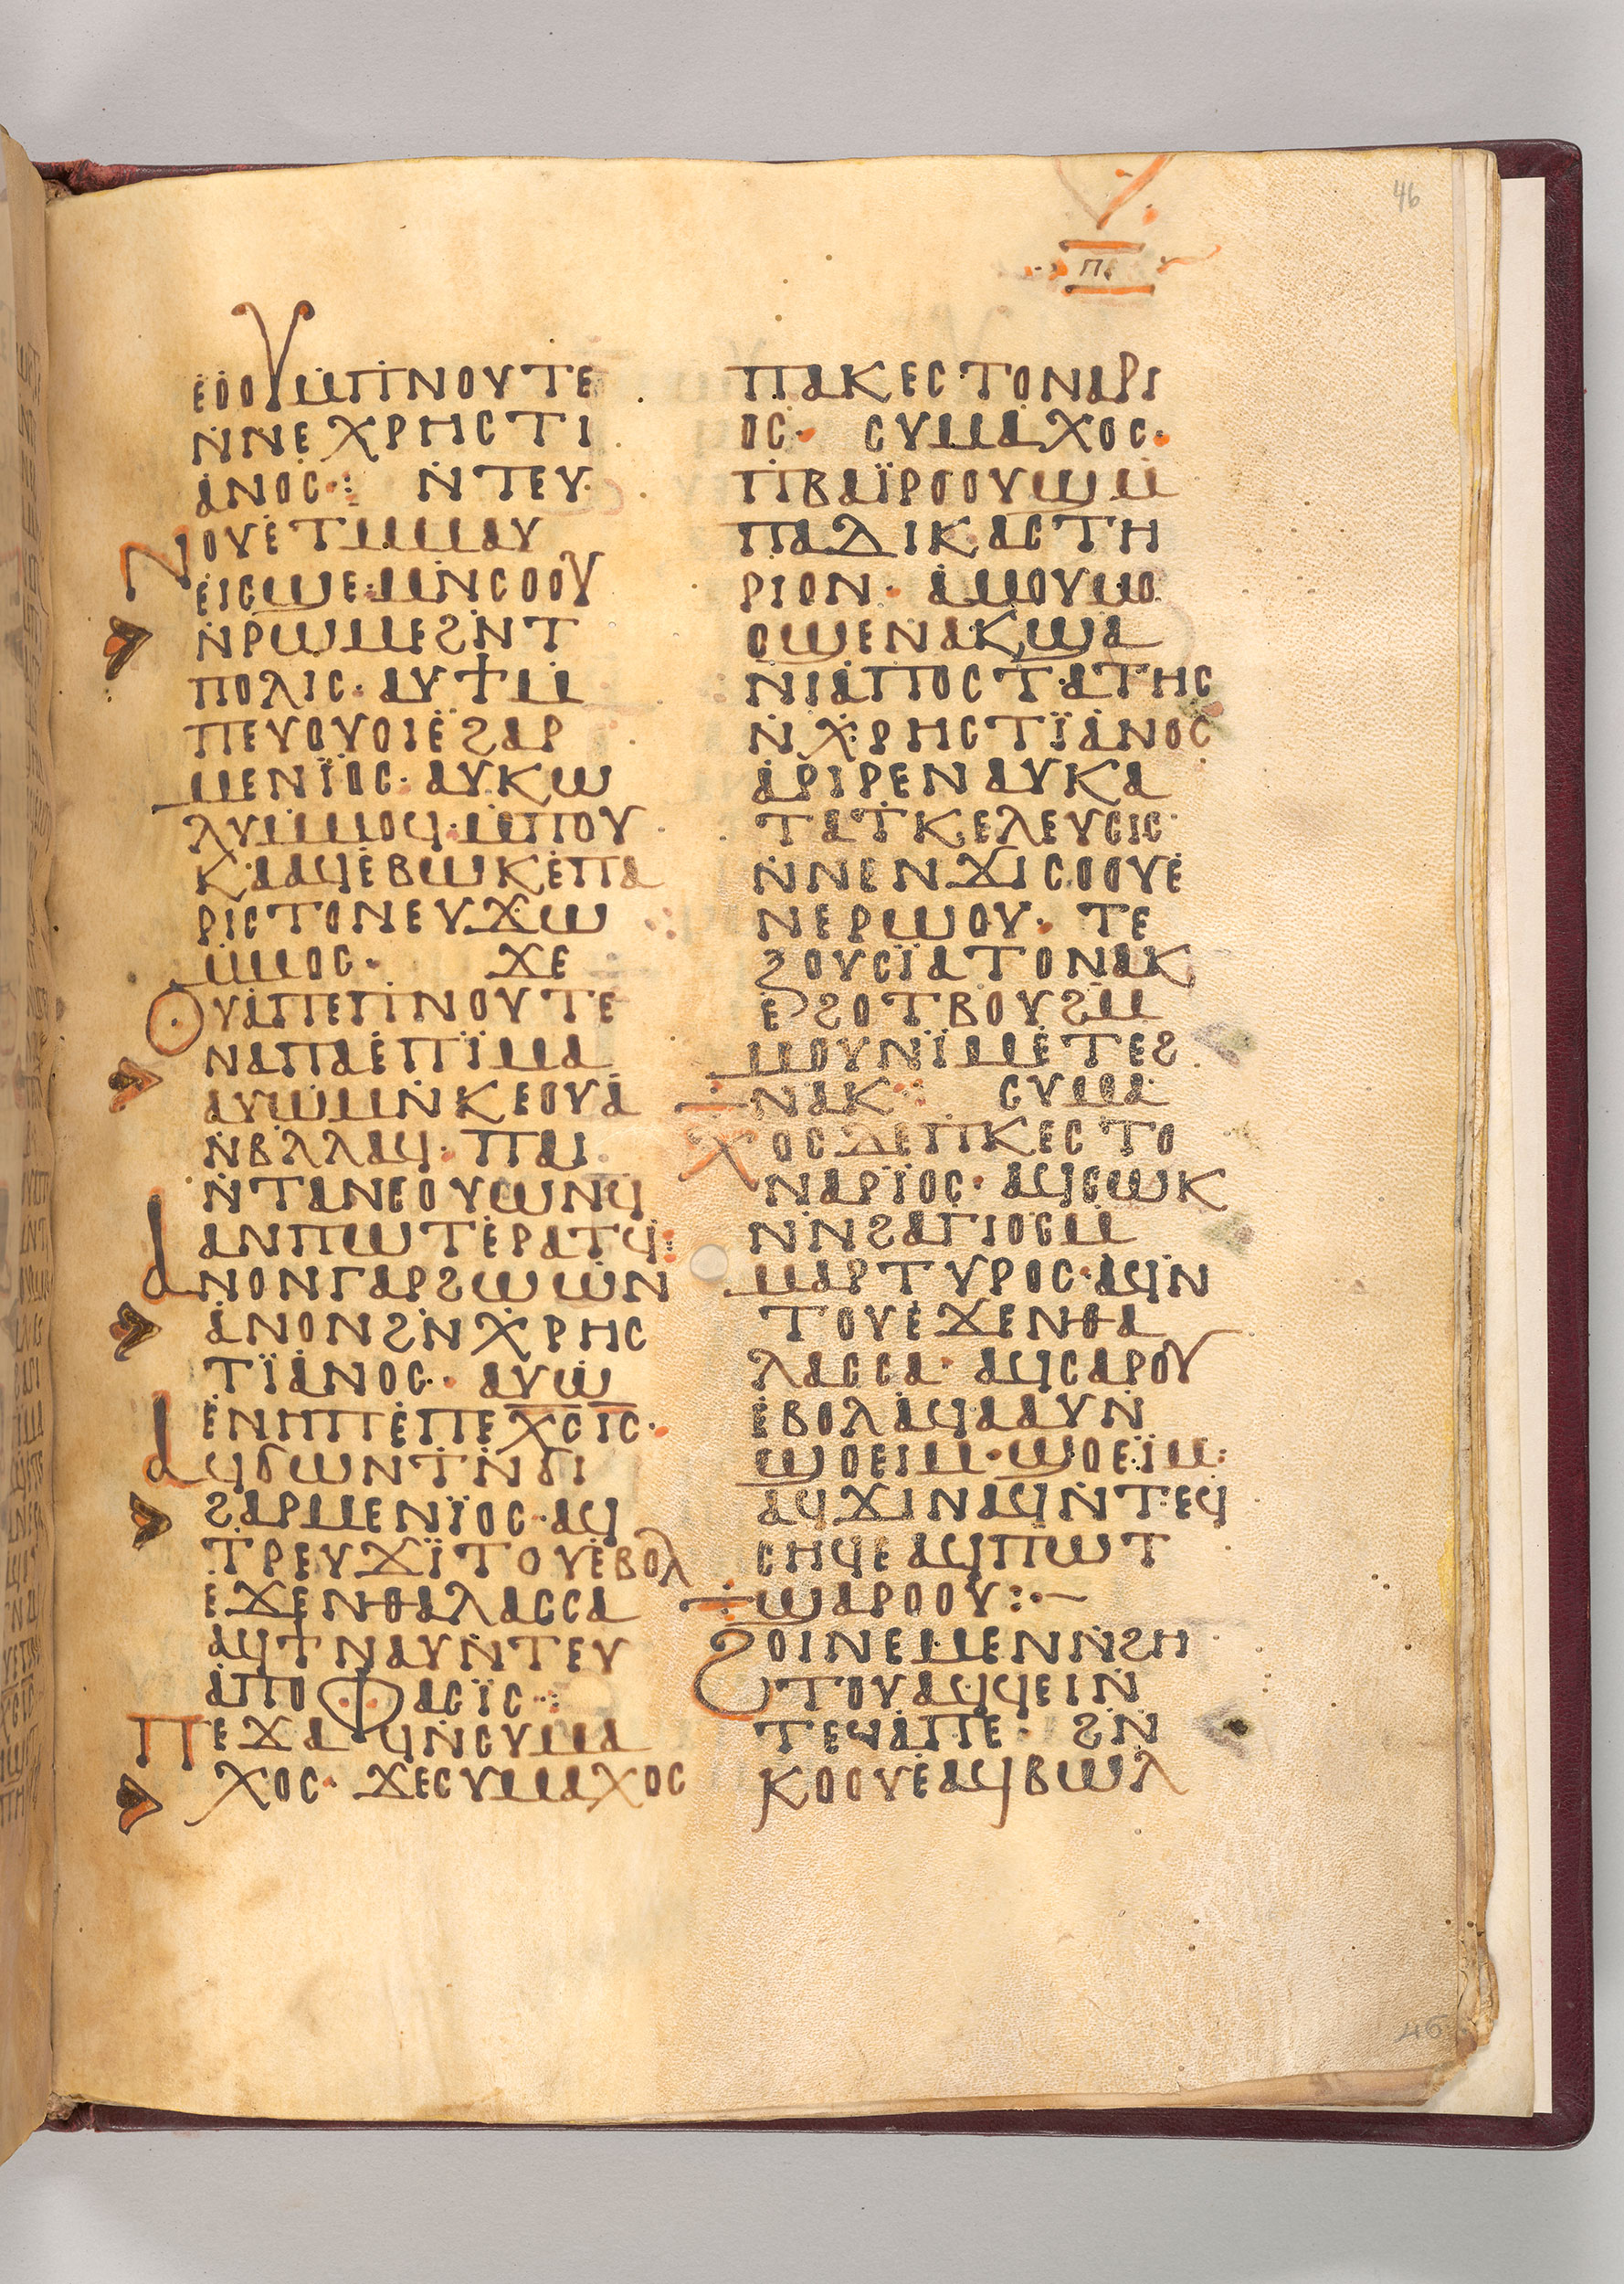 46
ⲡⲉ
ⲉ̇ⲟ̇ⲟⲩⲙ̇ⲡ̇ⲛⲟⲩⲧⲉ
ⲛ̇ⲛⲉⲭⲣⲏⲥⲧⲓ
ⲁ̇ⲛⲟⲥ⁘ ⲛ̇ⲧⲉⲩ
ⲛⲟⲩⲉ̇ⲧⲙ̇ⲙⲁⲩ
ⲉ̇ⲓⲥϣⲉ·ⲙⲛ̇ⲥⲟⲟⲩ
ⲛ̇ⲣⲱⲙⲉϩⲛ̇ⲧ
ⲡⲟⲗⲓⲥ· ⲁⲩϯⲙ̇
ⲡⲉⲩⲟⲩⲟⲓⲉ̇ϩⲁⲣ
ⲙⲉⲛⲓ̈ⲟⲥ· ⲁⲩⲕⲱ
ⲗⲩⲙ̇ⲙⲟϥ·ⲙ̇ⲡⲟⲩ
ⲕⲁⲁϥⲉ̇ⲃⲱⲕⲉ̇ⲡⲁ
ⲣⲓⲥⲧⲟⲛⲉⲩϫⲱ
ⲙ̇ⲙⲟⲥ· ϫⲉ
ⲟⲩⲁ̇ⲡⲉⲡ̇ⲛⲟⲩⲧⲉ
ⲛⲁⲡⲁⲉ̇ⲡⲓ̈ⲙⲁ
ⲁⲩⲱ̇ⲙⲛ̇ⲕⲉⲟⲩⲁ̇
ⲛ̇ⲃⲗⲗⲁϥ· ⲡⲁⲓ
ⲛ̇ⲧⲁⲛⲉⲟⲩⲱⲛϥ
ⲁⲛⲡⲱⲧⲉ̇ⲣⲁⲧϥ⁘
ⲁⲛⲟⲛⲅⲁⲣϩⲱⲱ̇ⲛ
ⲁ̇ⲛⲟⲛϩⲛ̇ⲭⲣⲏⲥ
ⲧⲓ̈ⲁ̇ⲛⲟⲥ· ⲁⲩⲱ̇
ⲉ̇ⲛⲏⲡⲉ̇ⲡⲉⲭ̅ⲥ̅ⲓ̅ⲥ̅·
ⲁϥϭⲱⲛⲧⲛ̇ϭⲓ
ϩⲁⲣⲙⲉⲛⲓ̈ⲟⲥ·ⲁϥ
ⲧⲣⲉⲩϫⲓ̈ⲧⲟⲩⲉ̇ⲃⲟⲗ
ⲉϫⲉⲛⲑⲁⲗⲁⲥⲥⲁ
ⲁϥϯⲛⲁⲩⲛ̇ⲧⲉⲩ
ⲁ̇ⲡⲟⲫⲁⲥⲓ̈ⲥ⁘
ⲡⲉϫⲁϥⲛ̇ⲥⲩⲙⲁ
ⲭⲟⲥ· ϫⲉⲥⲩⲙⲁⲭⲟⲥ
ⲡⲁⲕⲉⲥ·ⲧⲟⲛⲁⲣⲓ
ⲟⲥ· ⲥⲩⲙⲁⲭⲟⲥ·
ⲡ̇ⲃⲁⲓ̈ⲣⲟⲟⲩϣⲙ̇
ⲡⲁⲇⲓⲕⲁⲥⲧⲏ
ⲣⲓⲟⲛ· ⲁ̇ⲙⲟⲩⲙⲟ
ⲟϣⲉⲛⲁⲕϣⲁ
ⲛⲓⲁ̇ⲡⲟⲥⲧⲁⲧⲏⲥ
ⲛ̇ⲭⲣⲏⲥⲧⲓ̈ⲁ̇ⲛⲟⲥ
ⲁ̇ⲣⲓⲣⲉⲛⲁⲩⲕⲁ
ⲧⲁⲧⲕⲉⲗⲉⲩⲥⲓⲥ
ⲛ̇ⲛⲉⲛϫⲓⲥⲟⲟⲩⲉ̇
ⲛⲉⲣⲱⲟⲩ· ⲧⲉ
ⲝⲟⲩⲥⲓ̈ⲁⲧⲟⲛⲁⲕ
ⲉ̇ϩⲟⲧⲃⲟⲩϩⲙ̇
ⲙⲟⲩⲛⲓ̈ⲙⲉ̇ⲧⲉϩ
ⲛⲁⲕ⁘ ⲥⲩⲙⲁ
ⲭⲟⲥⲇⲉⲡ̇ⲕⲉⲥⲧⲟ
ⲛⲁⲣⲓ̈ⲟⲥ· ⲁϥⲥⲱⲕ
ⲛ̇ⲛϩⲁⲅⲓⲟⲥⲙ̇
ⲙⲁⲣⲧⲩⲣⲟⲥ·ⲁϥⲛ̇
ⲧⲟⲩⲉ̇ϫⲉⲛⲑⲁ
ⲗⲁⲥⲥⲁ· ⲁϥⲥⲁⲣⲟⲩ
ⲉ̇ⲃⲟⲗⲁϥⲁⲁⲩⲛ̇
ϣⲟⲉⲓⲙ·ϣⲟⲉⲓ̈ⲙ:
ⲁϥϫⲓⲛⲁϥⲛ̇ⲧⲉϥ
ⲥⲏϥⲉⲁϥⲡⲱⲧ
ϣⲁⲣⲟⲟⲩ⁘—
ϩⲟⲓⲛⲉⲙⲉⲛⲛ̇ϩⲏ
ⲧⲟⲩⲁϥϥⲉⲓⲛ̇
ⲧⲉϥⲁⲡⲉ· ϩⲛ̇
ⲕⲟⲟⲩⲉ̇ⲁϥⲃⲱⲗ
46